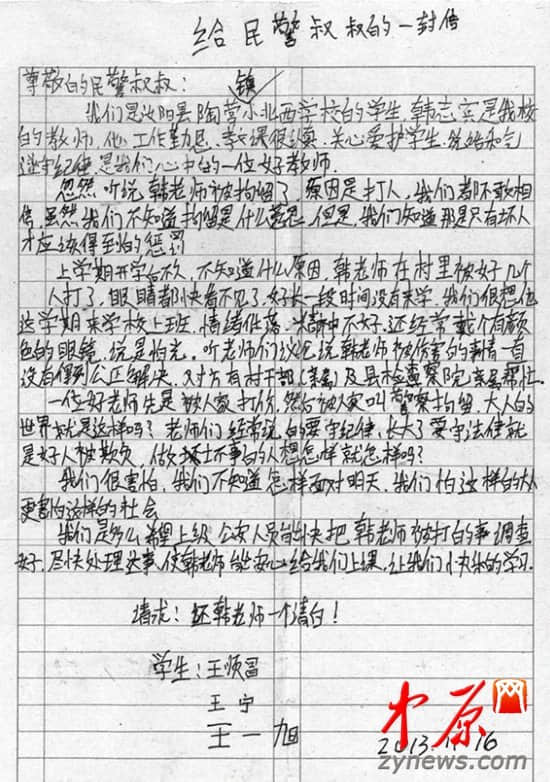 给民警叔叔的一封信
尊敬的民警叔叔:
镇
我们是汝阳县陶营小北西学校的学生,韩志实是我校
的教师,他工作勤恳,教课很认真,关心爱护学生,
遵守纪律,是我们心中的一位好教师。
忽然听说韩老师被拘留了,原因是打人,我们都不敢相
信,虽然我们不知道拘留是什么意思,但是,我们知道那是只有坏人
才应该得到的惩罚
上学期开学不久,不知道什么原因,韩老师在村里被好几个
人打了,眼睛都快看不见了,好长一段时间没有来学,我们很想他
这学期来学校上班,情绪低落,不好,还经常戴个有颜
色的眼镜,说是怕光。听老师们议论说韩老师被伤害的事情一直
没有得到公正解决,对方有村干部(亲属)及县检查察院亲属帮忙。
一位好老师先是被人家打伤,然后被人家叫警察拘留,大人的
世界就是这样吗?老师们经常说的要守纪律,长大了要守法律就
是好人被欺负,做坏事的人想怎样就怎样吗?
我们很害怕,我们不知道怎样面对明天,我们怕这样的大人
更害怕这样的社会
我们是多么希望上级公安人员能尽快把韩老师被打的事调查
好,尽快处理这事,使韩老师能安心给我们上课,让我们快乐的学习。
请求:还韩老师一个清白!
学生:王顺富
王宁
王一旭
2013.11.16
中原网
zynews.com